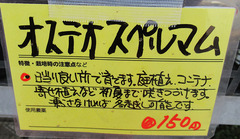 オステオスペルマム
特徴・栽培時の注意点など
日当り良い所で育てます。庭植え、コンテナ
寄せ植えなど 初夏まで咲きつづけます。
寒さなければ 多年草し可能です
信州農園
150円